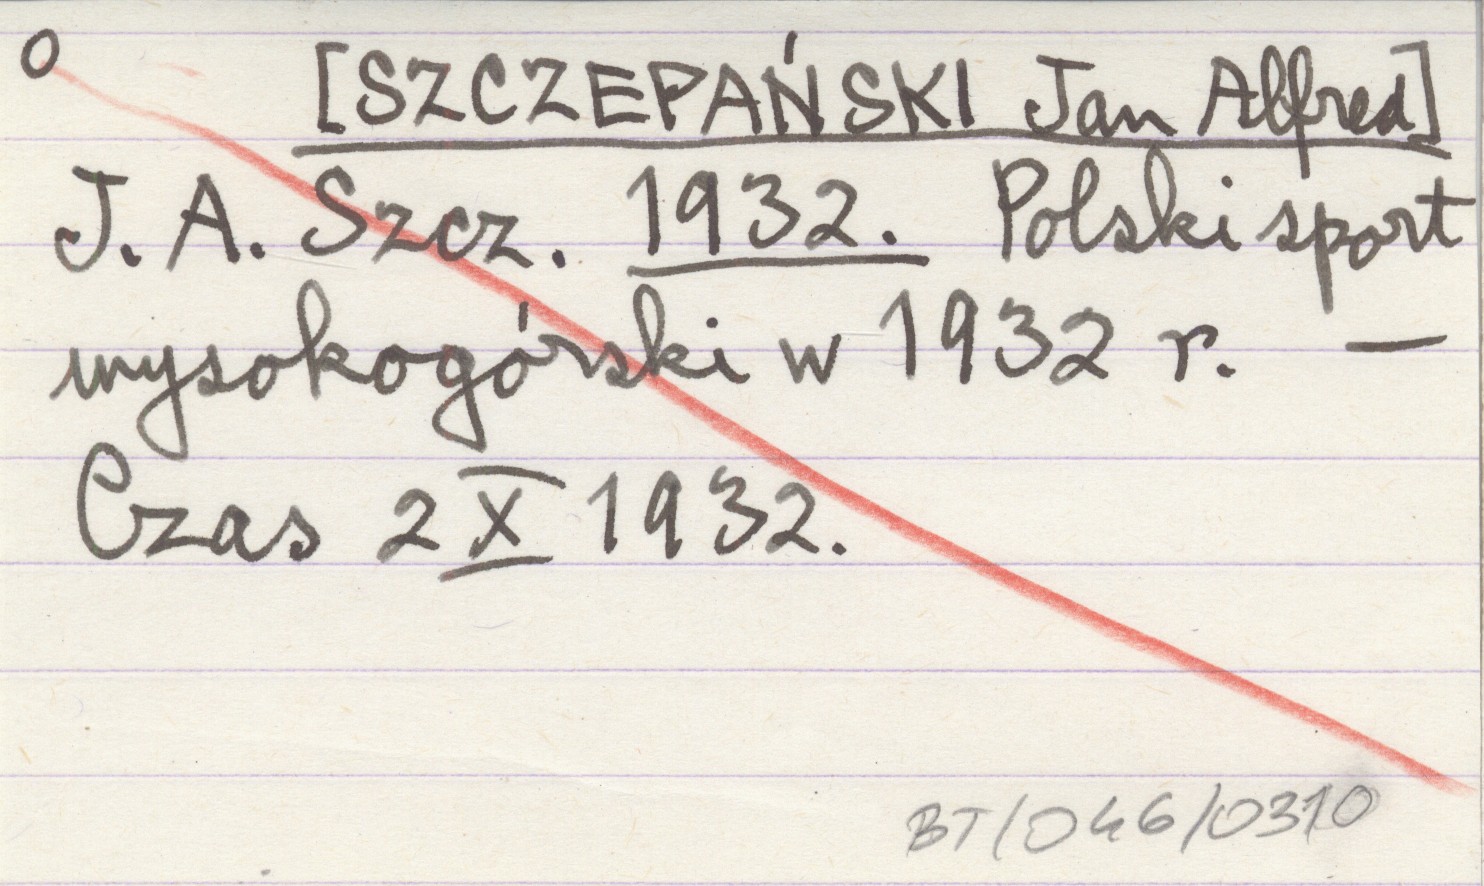 O
[SZCZEPAŃSKI Jan Alfred]
J. A. Szcz. 1932. Polski sport
wysokogórski w 1932 r. —
Czas 2 X 1932.
BT/046/0310